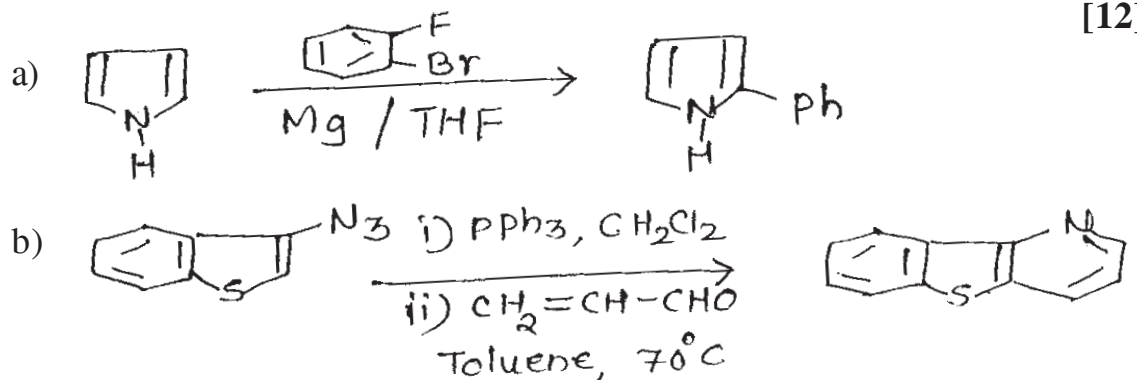 [12]
a) N H F Br Mg / THF N H ph
b) N3 S i) PPh3, CH2Cl2
ii) CH2=CH-CHO
Toluene, 70°C
S N